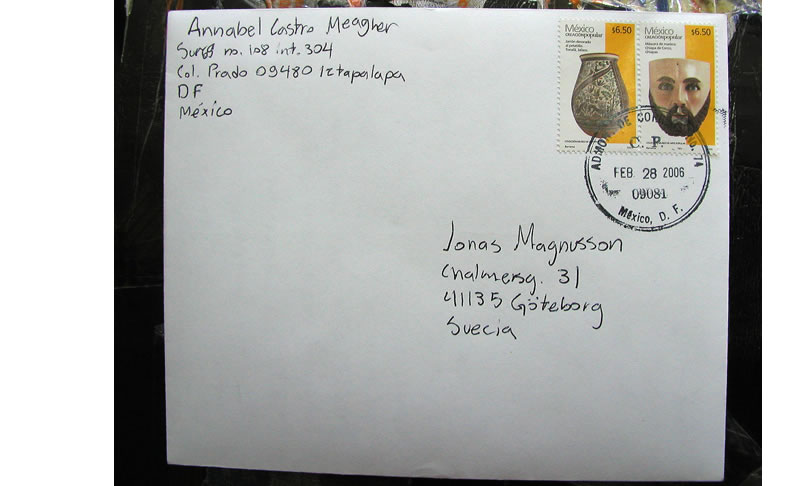 Annabel Castro Meagher
no. 108 int. 304
Col. Prado 09480 Iztapalapa
DF
México
México
CREACIÓN popular
$6.50
México
CREACIÓN popular
$6.50
C. P.
FEB. 28 2006
09081
México, D. F.
Jonas Magnusson
Chalmersg. 31
41135 Göteborg
Suecia